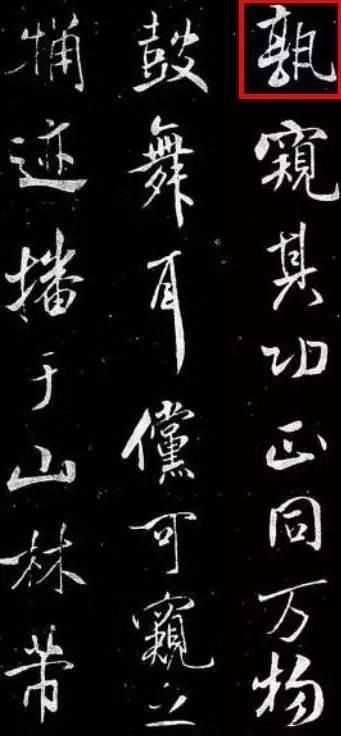 孰窺其功正同万物
鼓舞耳儻可窺之
迹播于山林芾